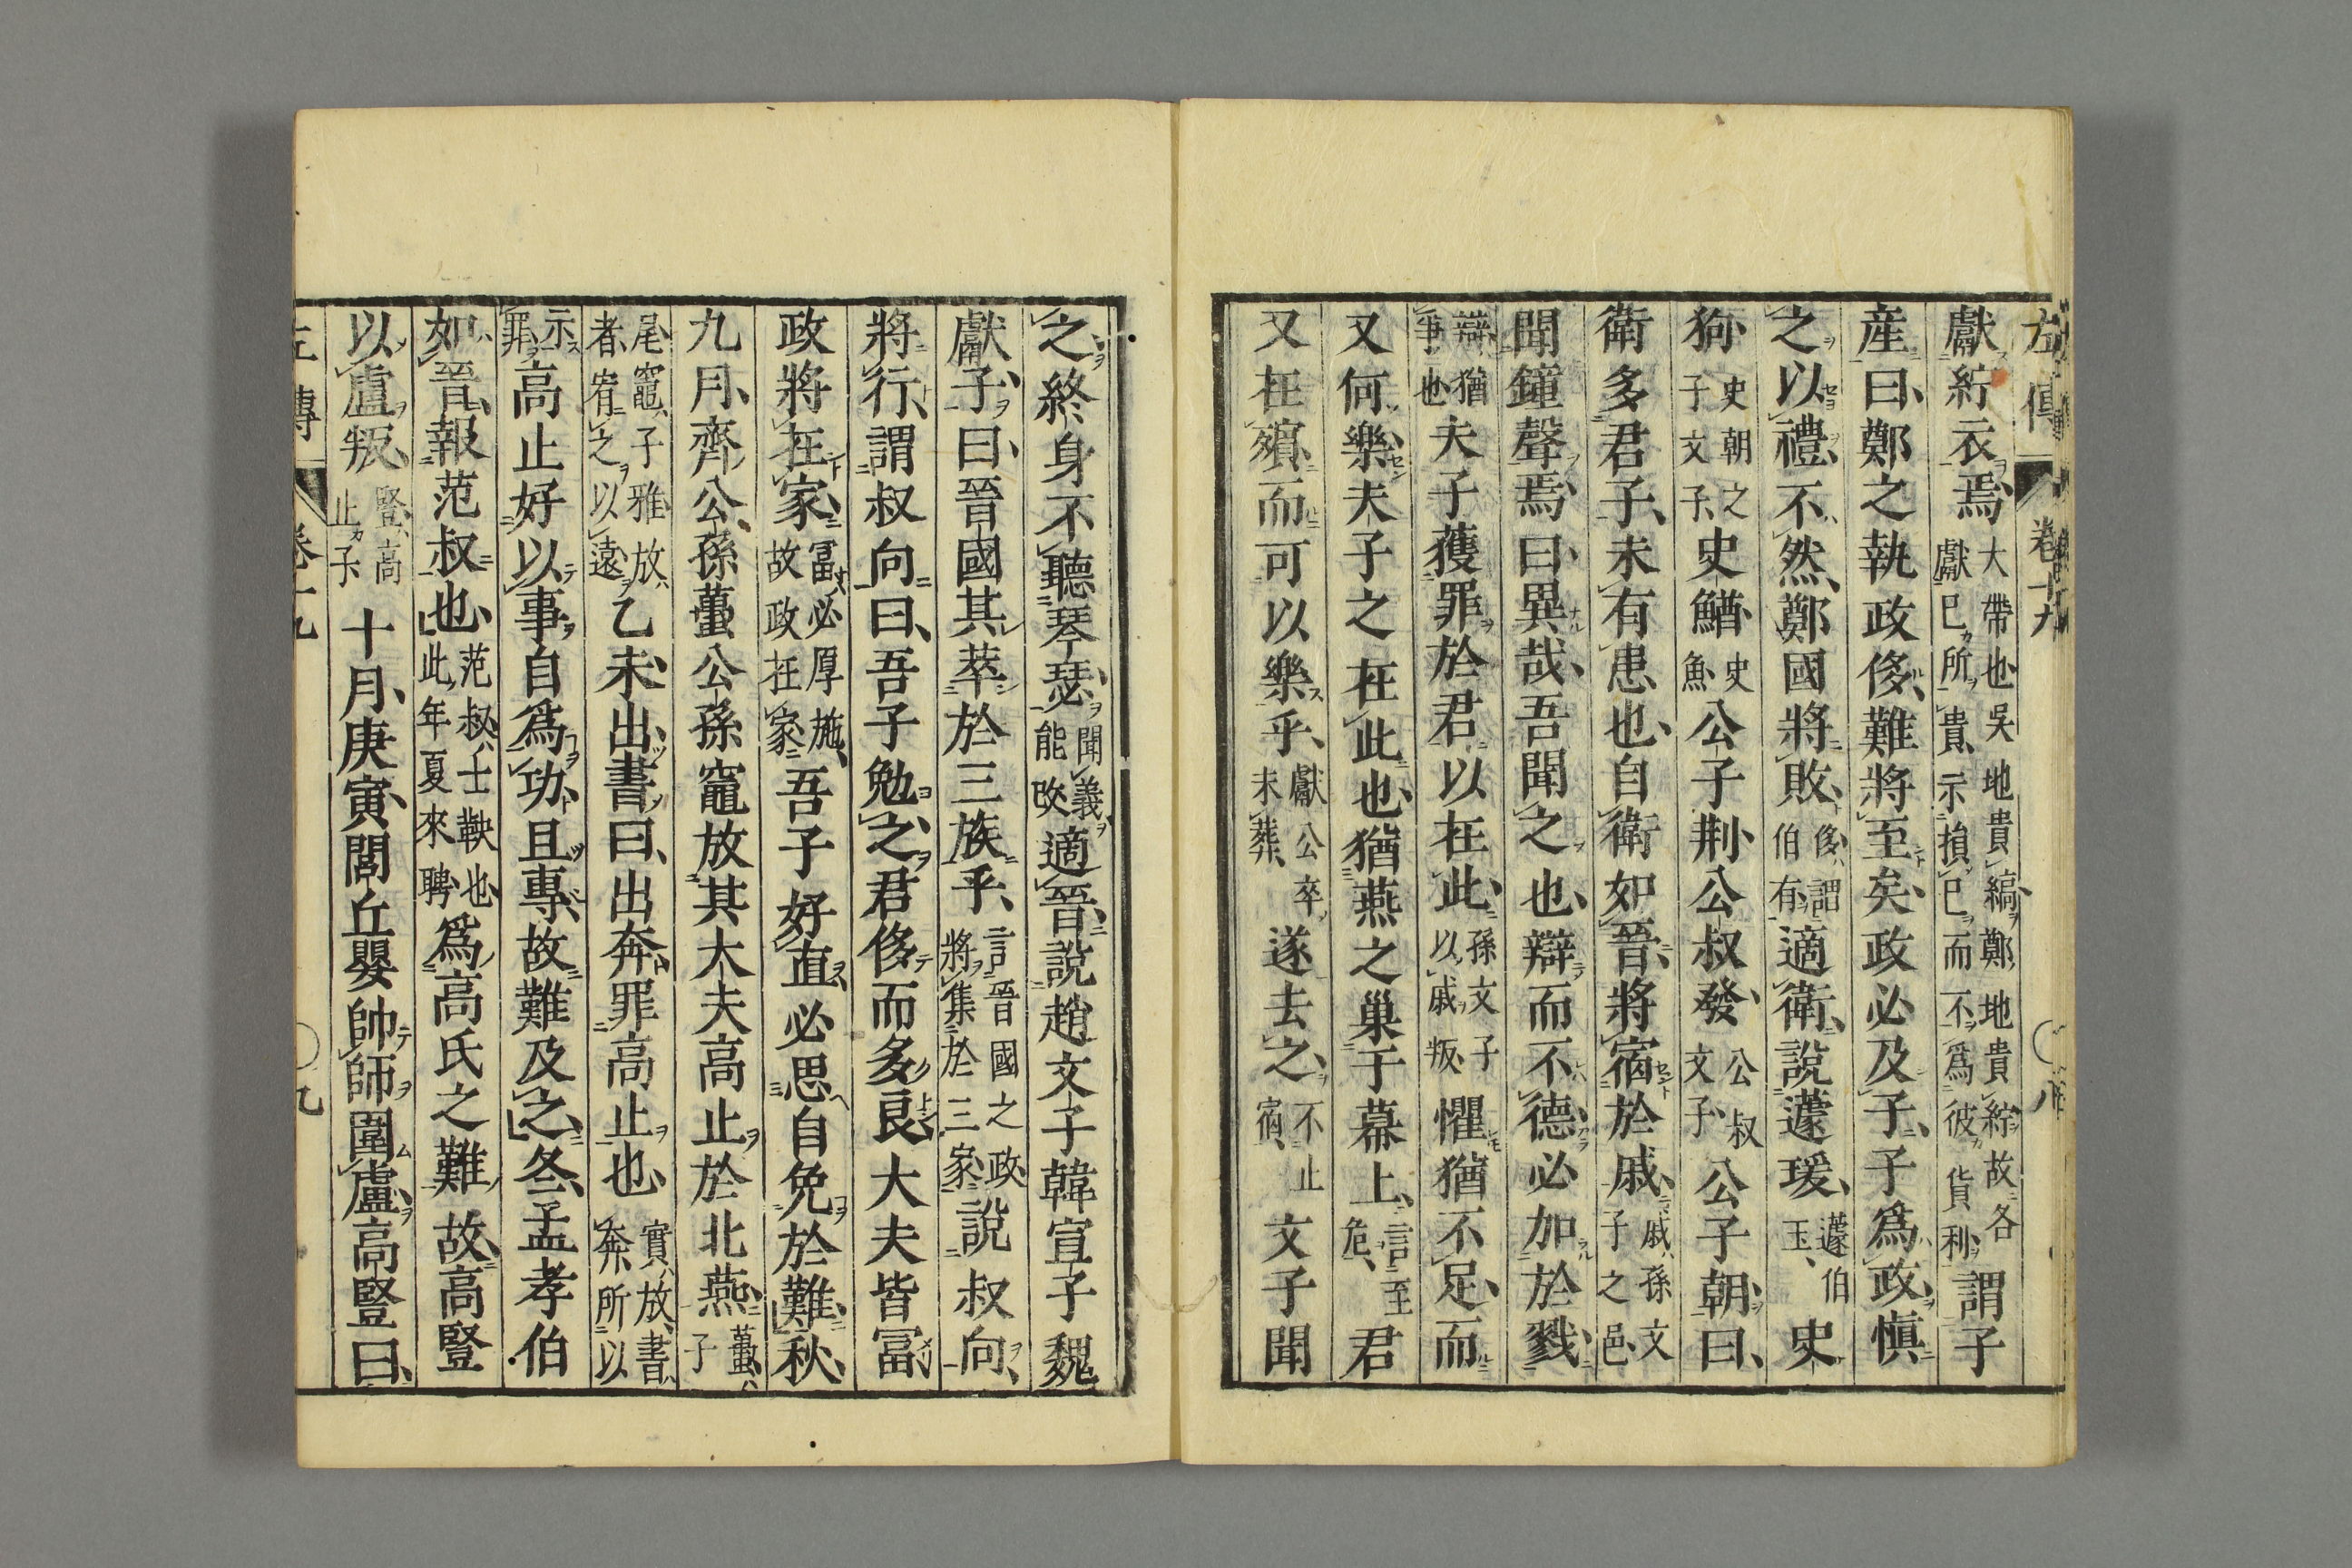 左傳 卷十九 八
獻紵衣焉大帶也吳地貴縞鄭地貴紵故各獻已所貴示損已而不爲彼貨利謂子
產曰鄭之執政侈難將至矣政必及子子爲政愼
之以禮不然鄭國將敗侈謂伯有適衛說蘧瑗蘧伯玉史
狗史朝之子文子史鰌史魚公子荆公叔發公叔文子公子朝曰
衛多君子未有患也自衛如晉將宿於戚戚孫文子之邑
聞鐘聲焉曰異哉吾聞之也辯而不德必加於戮
辯猶爭也夫子獲罪於君以在此孫文子以戚叛懼猶不足而
又何樂夫子之在此也猶燕之巢于幕上言至危君
又在殯而可以樂乎獻公卒未葬遂去之不止宿文子聞
之終身不聽琴瑟聞義能改適晉說趙文子韓宣子魏
獻子曰晉國其萃於三族乎言晉國之政將集於三家說叔向
將行謂叔向曰吾子勉之君侈而多良大夫皆冨
政將在家冨必厚施故政在家吾子好直必思自免於難秋
九月齊公孫蠆公孫竈放其大夫高止於北燕蠆子
尾竈子雅放者宥之以遠乙未出書曰出奔罪高止也實放書奔所以
示罪高止好以事自爲功且專故難及之冬孟孝伯
如晉報范叔也范叔士鞅也此年夏來聘爲高氏之難故高豎
以盧叛豎高止子十月庚寅閭丘嬰帥師圍盧高豎曰
左傳 卷十九 九